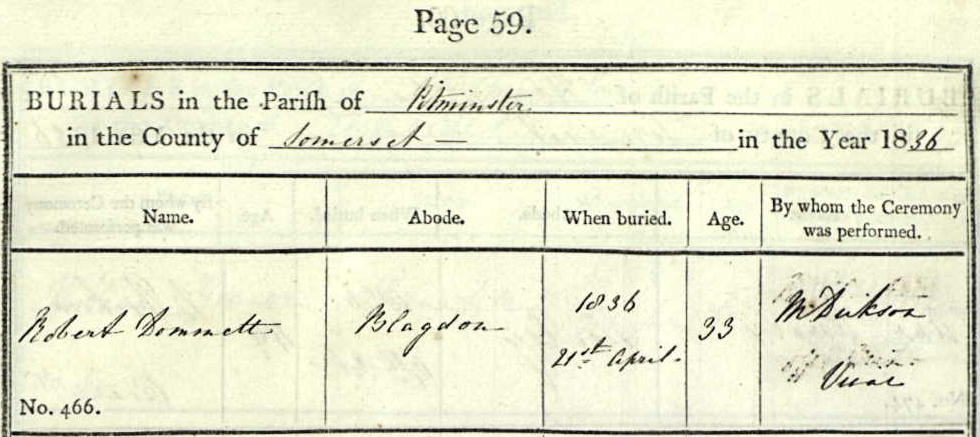 Page 59.
BURIALS in the Parish of Pitminster
in the County of Somerset — in the Year 1836
Name. Abode. When buried. Age. By whom the Ceremony
was performed.
Robert Dommett Blagdon 1836 21st April. 33 Dickson
Vicar
No. 466.